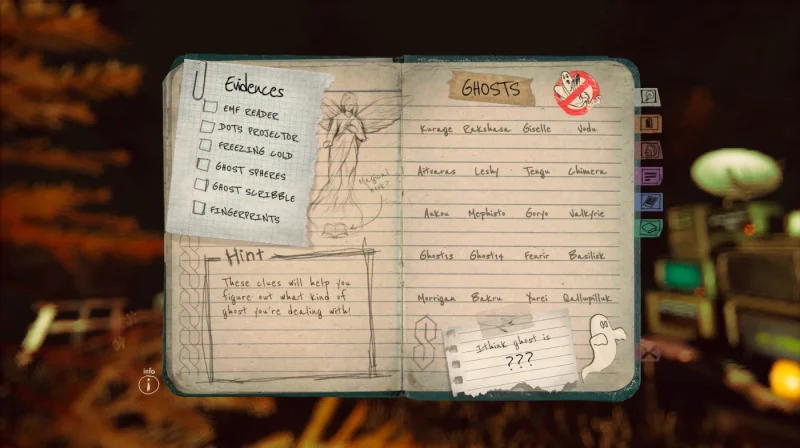 Evidences
EMF READER
DOTS PROJECTOR
FREEZING COLD
GHOST SPHERES
GHOST SCRIBBLE
FINGERPRINTS
Magical
Hint
These clues will help you
figure out what kind of
ghost you're dealing with!
info
GHOSTS
Kurage Rakshasa Giselle Vodu
Aitvaras Leshy Tengu Chimera
Ankou Mephisto Goryo Valkyrie
Ghost13 Ghost14 Fenrir Basilisk
Morrigan Bakru Yurei Qallupilluk
I think ghost is
???